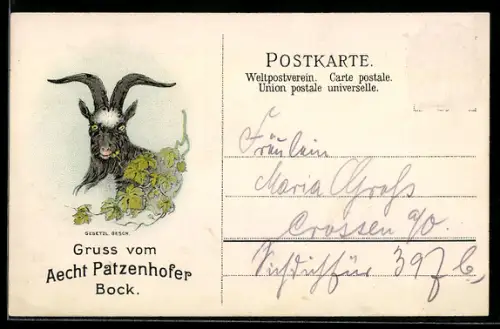 POSTKARTE.
Weltpostverein. Carte postale.
Union postale universelle.
GESETZL. GESCH.
Gruss vom
Aecht Patzenhofer
Bock.
Fräulein
Maria Groß
Crossen a/O.
397 b,